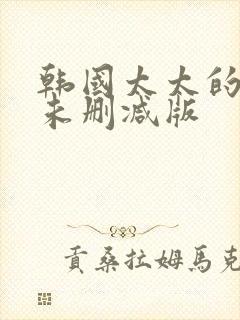 韩國太太的
未删减版
貢桑拉姆馬克